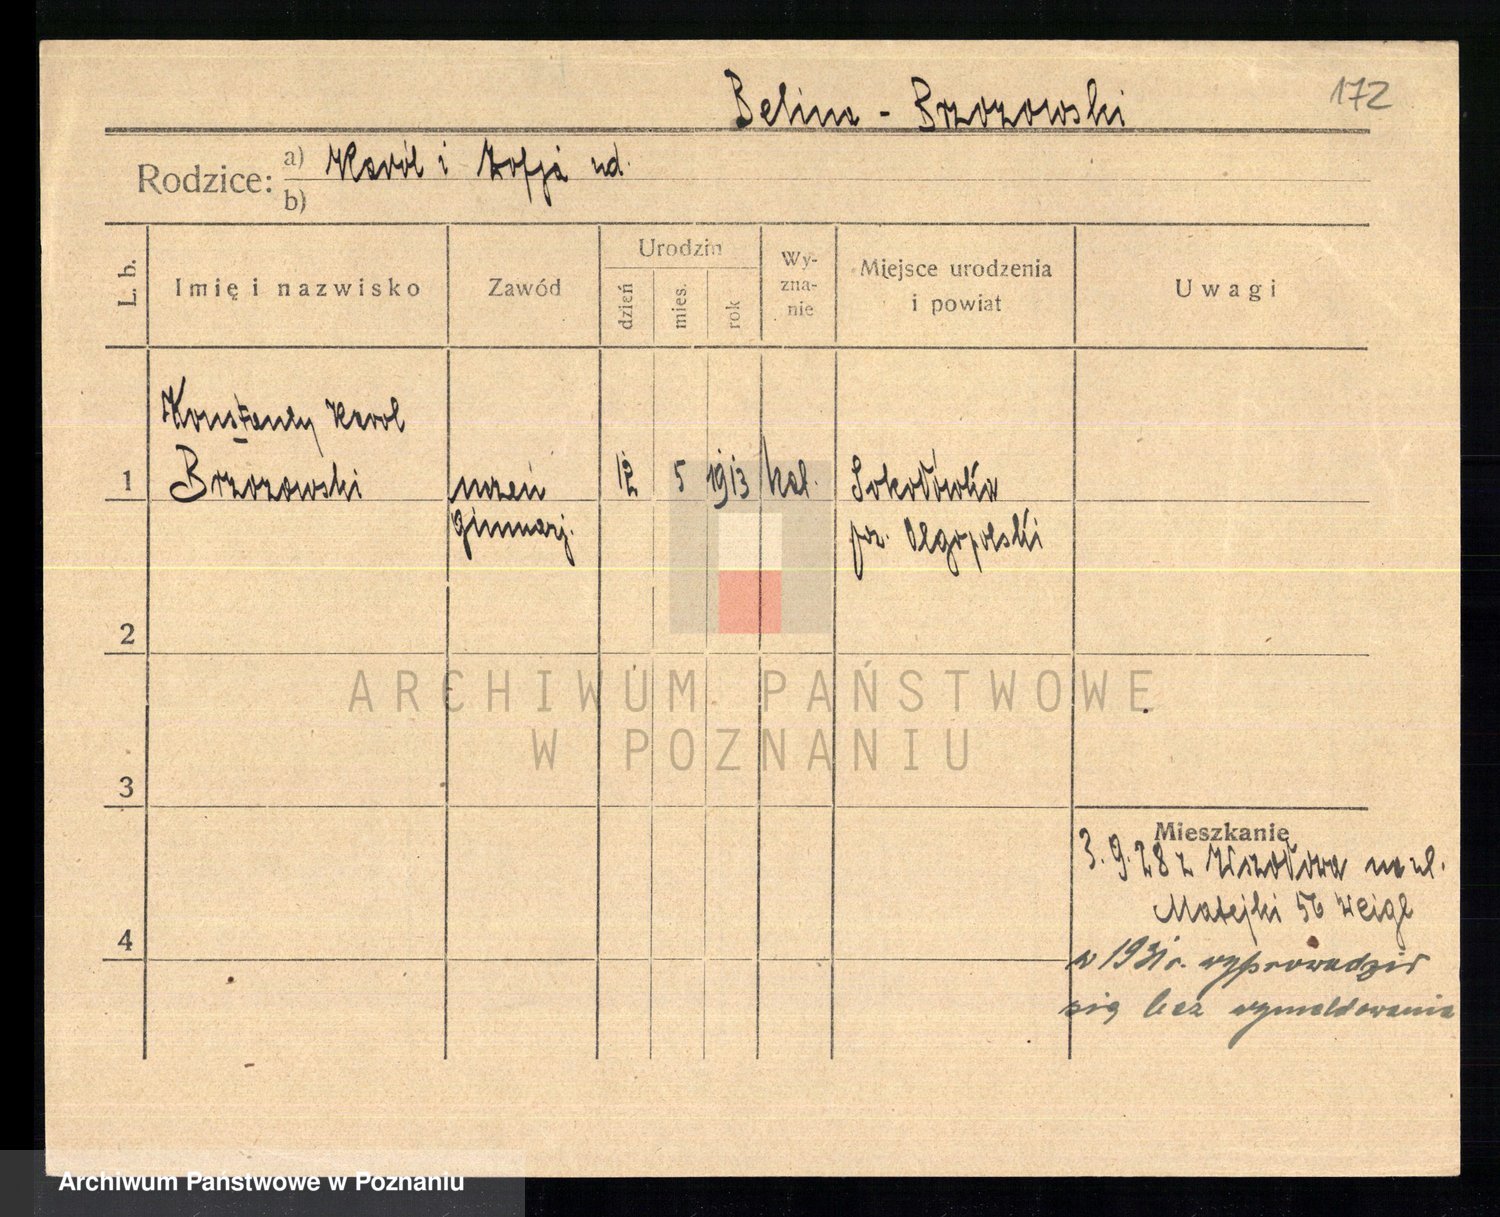 172
Belina - Brzozowski
Rodzice: a) Karól i Zofja ud.
b)
L. b.
Imię i nazwisko
Zawód
Urodzin
dzień
mies.
rok
Wy-
zna-
nie
Miejsce urodzenia
i powiat
Uwagi
Konstanty Karol
1 Brzozowski uczeń 12 5 1913 kat. Sokołówka
gimnazj. pow. Olgopolski
2
3
4
ARCHIWUM PAŃSTWOWE
W POZNANIU
Mieszkanie
3. 9. 28 z na ul.
Matejki 56
w 1931 r. wyprowadził
się bez wymeldowania
Archiwum Państwowe w Poznaniu